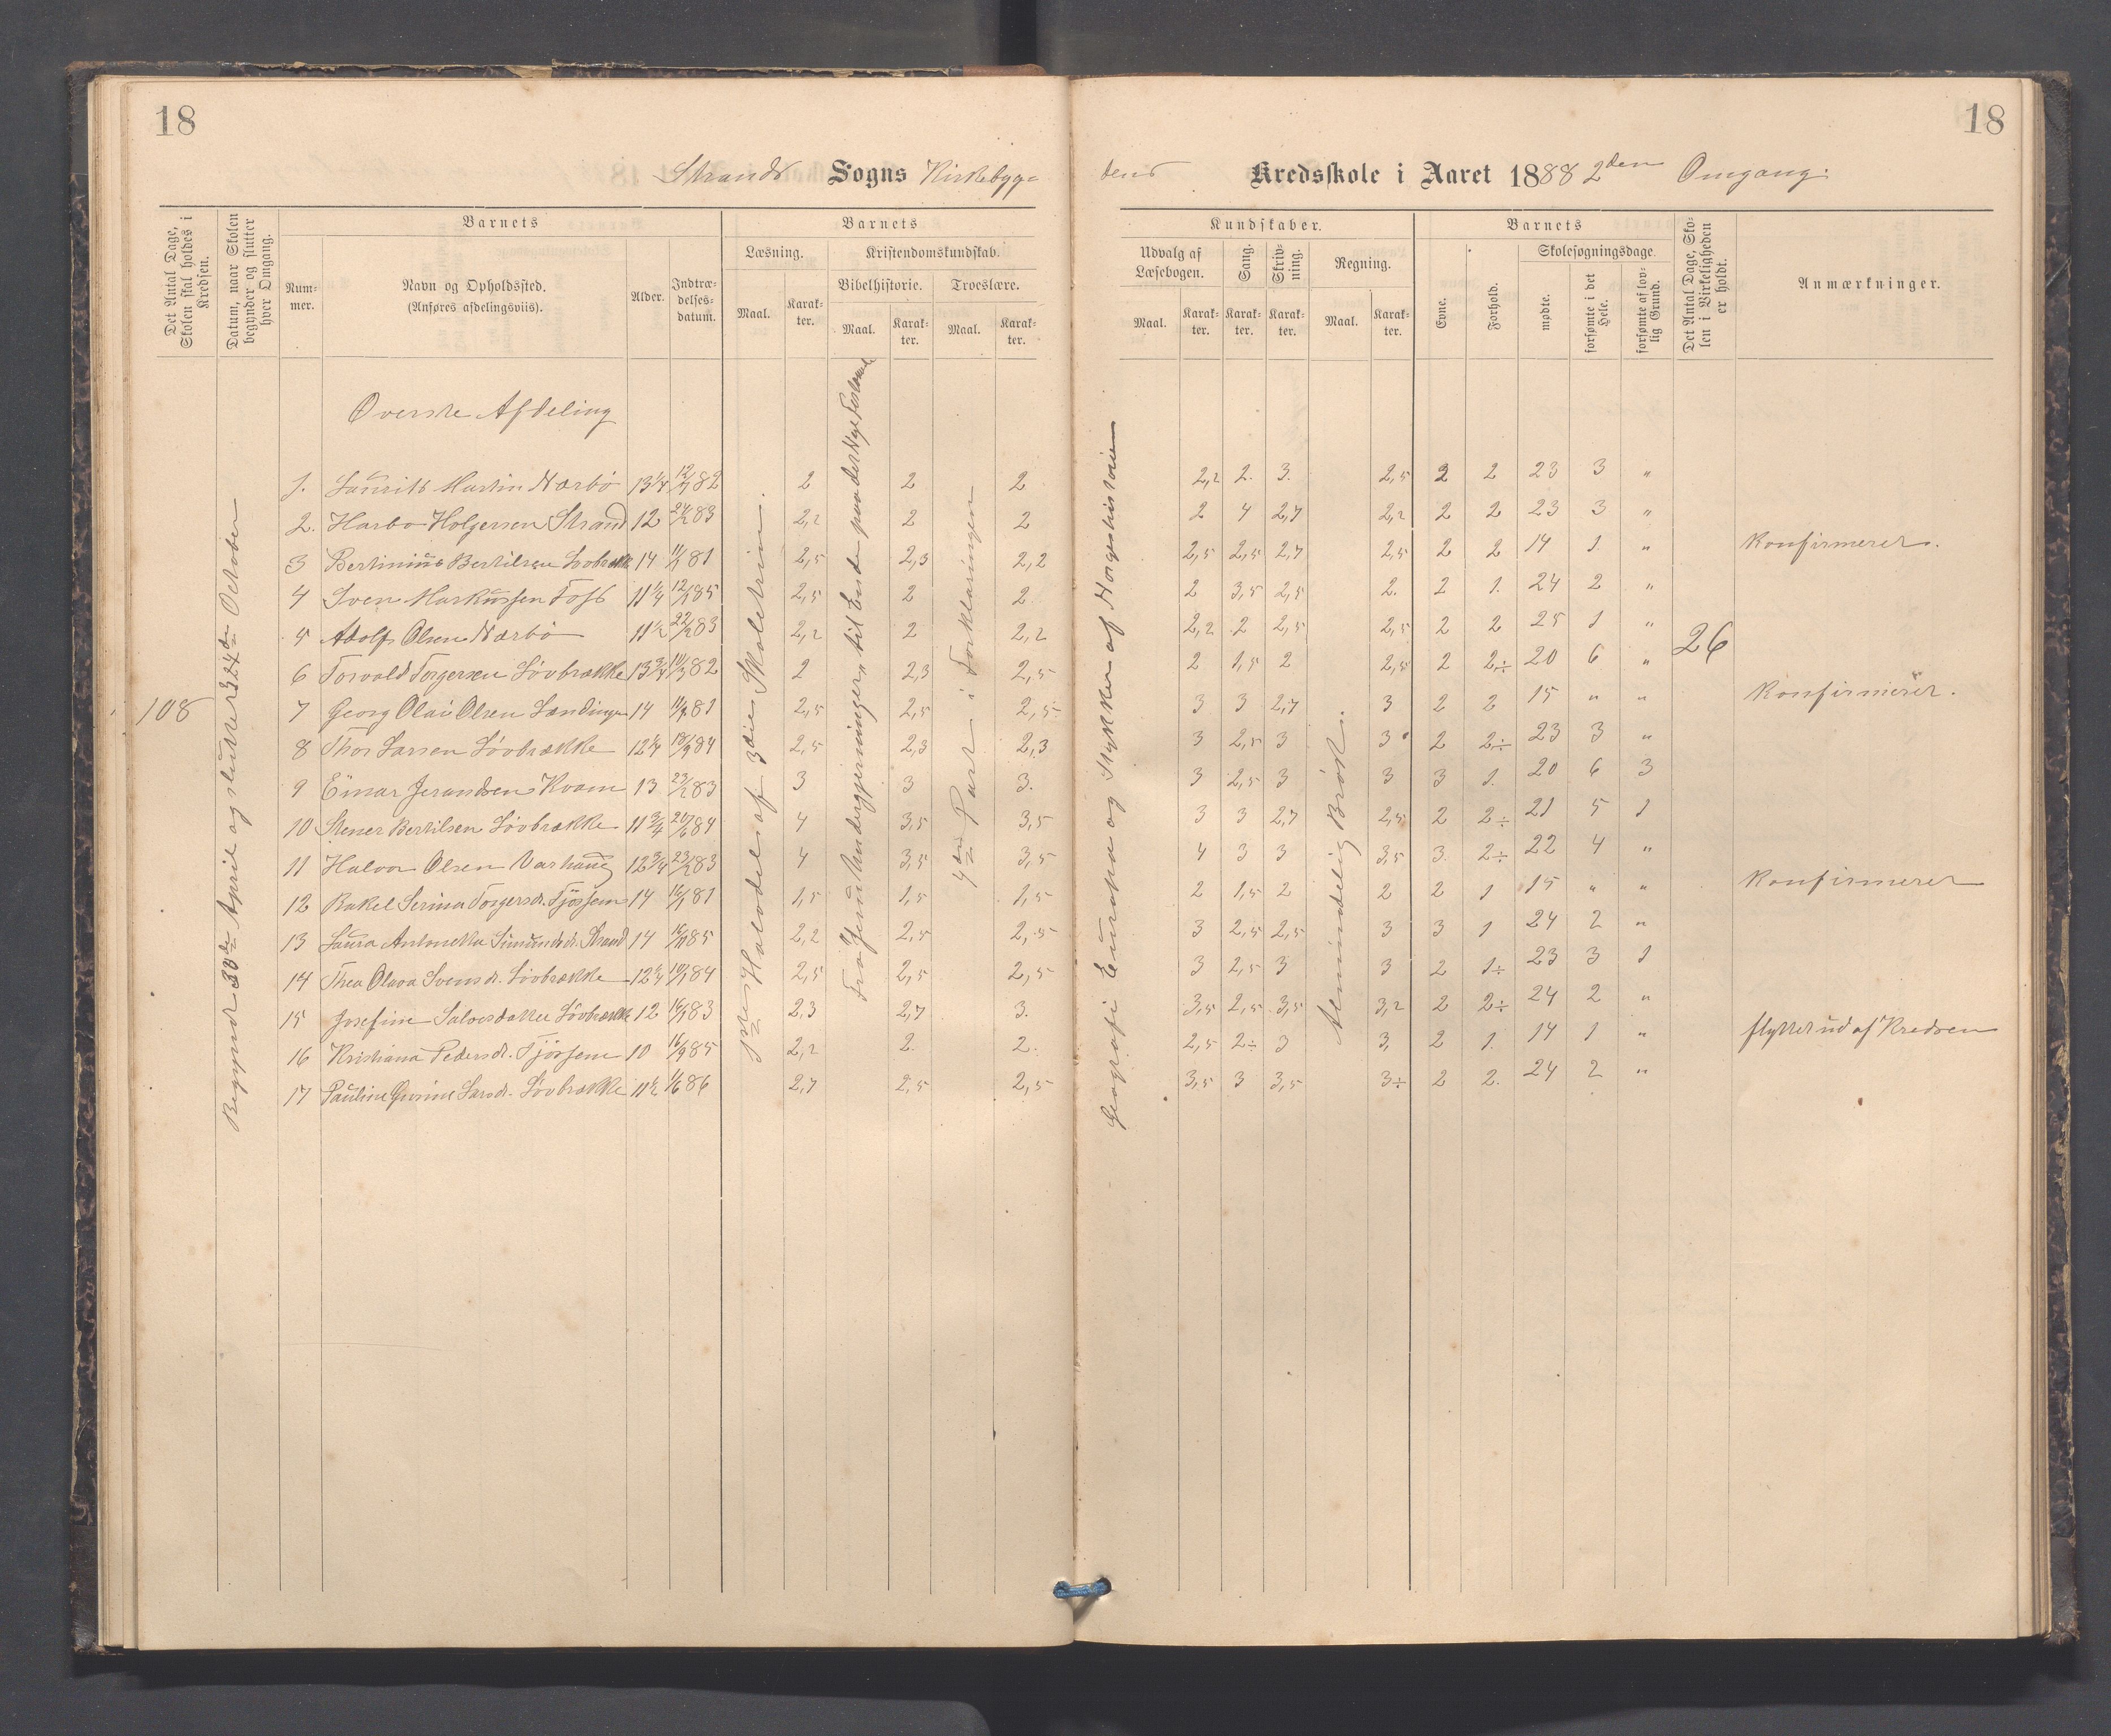 18
18
Strands Sogns Kirkebyg=
dens Kredsskole i Aaret 1888 2den Omgang.
Det Antal Dage, Skolen skal holdes i Kredsen.
Datum, naar Skolen begynder og slutter hver Omgang.
Barnets
Num-mer.
Navn og Opholdssted.
(Anføres afdelingsviis).
Alder.
Indtræ-delses-datum.
Barnets
Læsning.
Maal.
Karak-ter.
Kristendomskundskab.
Bibelhistorie.
Maal.
Karak-ter.
Troeslære.
Maal.
Karak-ter.
Kundskaber.
Udvalg af Læsebogen.
Maal.
Karak-ter.
Sang.
Karak-ter.
Skriv-ning.
Karak-ter.
Regning.
Maal.
Karak-ter.
Barnets
Evne.
Forhold.
Skolesøgningsdage.
mødte.
forsømte i det Hele.
forsømte af lov-lig Grund.
Det Antal Dage, Sko-len i Virkeligheden er holdt.
Anmærkninger.
Øverste Afdeling
108
Begyndt 30de April og sluttet 24de October
1ste Halvdel af 3die Skoletrin.
4de Part i Forklaringen
Geografi Europa og Stykker af Norgeshistorien
Almindelig Brøk.
26
1. Laurits Martin Nærbø 13 1/4 12/7 82 2 2 2 2,2 2. 3. 2,5 2 2 23 3 "
2. Harbo Holgersen Strand 12 24/2 83 2,2 2 2 2 4 2,7 2,2 2 2 23 3 "
3 Bertinius Bertilsen Løvbrække 14 81 2,5 2,3 2,2 2,5 2,5 2,7 2,5 2 2 14 1. " Konfirmeret.
4 Sven Markussen Toft 11 1/4 12/1 85 2,5 2 2. 2 3,5 2,5 2. 2 1. 24 2 "
5 Adolf Olsen Nærbø 11 1/2 22/2 83 2,2 2 2,2 2,2 2 2,5 2,5 2 2 25 1 "
6 Torvald Torgersen Løvbrække 13 3/4 11/3 82 2 2,3 2,5 2 1,5 2 2,5 2 2÷ 20 6 "
7 Georg Olai Olsen Landinger 14 81 2,5 2,5 2,5 3 3 2,7 3 2 2 15 " " Konfirmeret.
8 Thor Larsen Løvbrække 12 1/4 18/9 84 2,5 2,3 2,3 3 2,5 3 3 2 2÷ 23 3 "
9 Einar Jerandsen Kvam 13 23/2 83 3 3 3. 3 2,5 3 3 3 1. 20 6 3
10 Stener Bertilsen Løvbrække 11 3/4 20/6 84 4 3,5 3,5 3 3 2,7 2,5 2 2÷ 21 5 1
11 Halvor Olsen Varhaug 12 3/4 23/2 83 4 3,5 3,5 4 3 3 3,5 3. 2÷ 22 4 "
12 Rakel Serina Torgersdr. Tjøssem 14 16/1 81 1,5 1,5 1,5 2 1,5 2 2 2 1 15 " " Konfirmeret
13 Laura Antonetta Simundsdr. Strand 14 85 2,2 2,5 2,5 3 2,5 2,5 3 3 1 24 2 "
14 Thea Olava Svensdr. Løvbrække 12 1/4 84 2,5 2,5 2,5 3 2,5 3 3 2 1÷ 23 3 1
15 Josefine Salvesdatter Løvbrække 12 16/1 83 2,3 2,7 3. 3,5 2,5 3,5 3,2 2 2÷ 24 2 "
16 Kristiana Pedersdr. Tjøssem 10 16/9 85 2,2 2. 2. 2,5 2÷ 3 3, 2 1. 14 1 " flyttet ud af Kredsen
17 Pauline Larsdr. Løvbrække 11 1/2 1/6 86 2,7 2,5 2,5 3,5 3 3,5 3÷ 2 2. 24 2 "